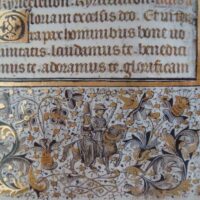 loria in excelsis deo. Et in
ra pax hominibus bone vo
luntatis. laudamus te. benedici
mus te. adoramus te. glorificam